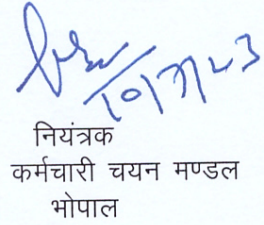 10/7/23
नियंत्रक
कर्मचारी चयन मण्डल
भोपाल